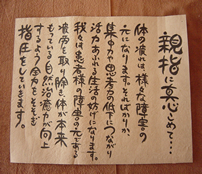 親指に思いをこめて…
体の疲れは、様々な障害の
元になります。そればかりか、
集中力や思考の低下につながり
活力あふれる生活の妨げになります。
我々は患者様の障害の元である
疲労を取り除き、体が本来
もっている自然治癒力が向上
するよう全力をそそぎ
指圧をしていきます。